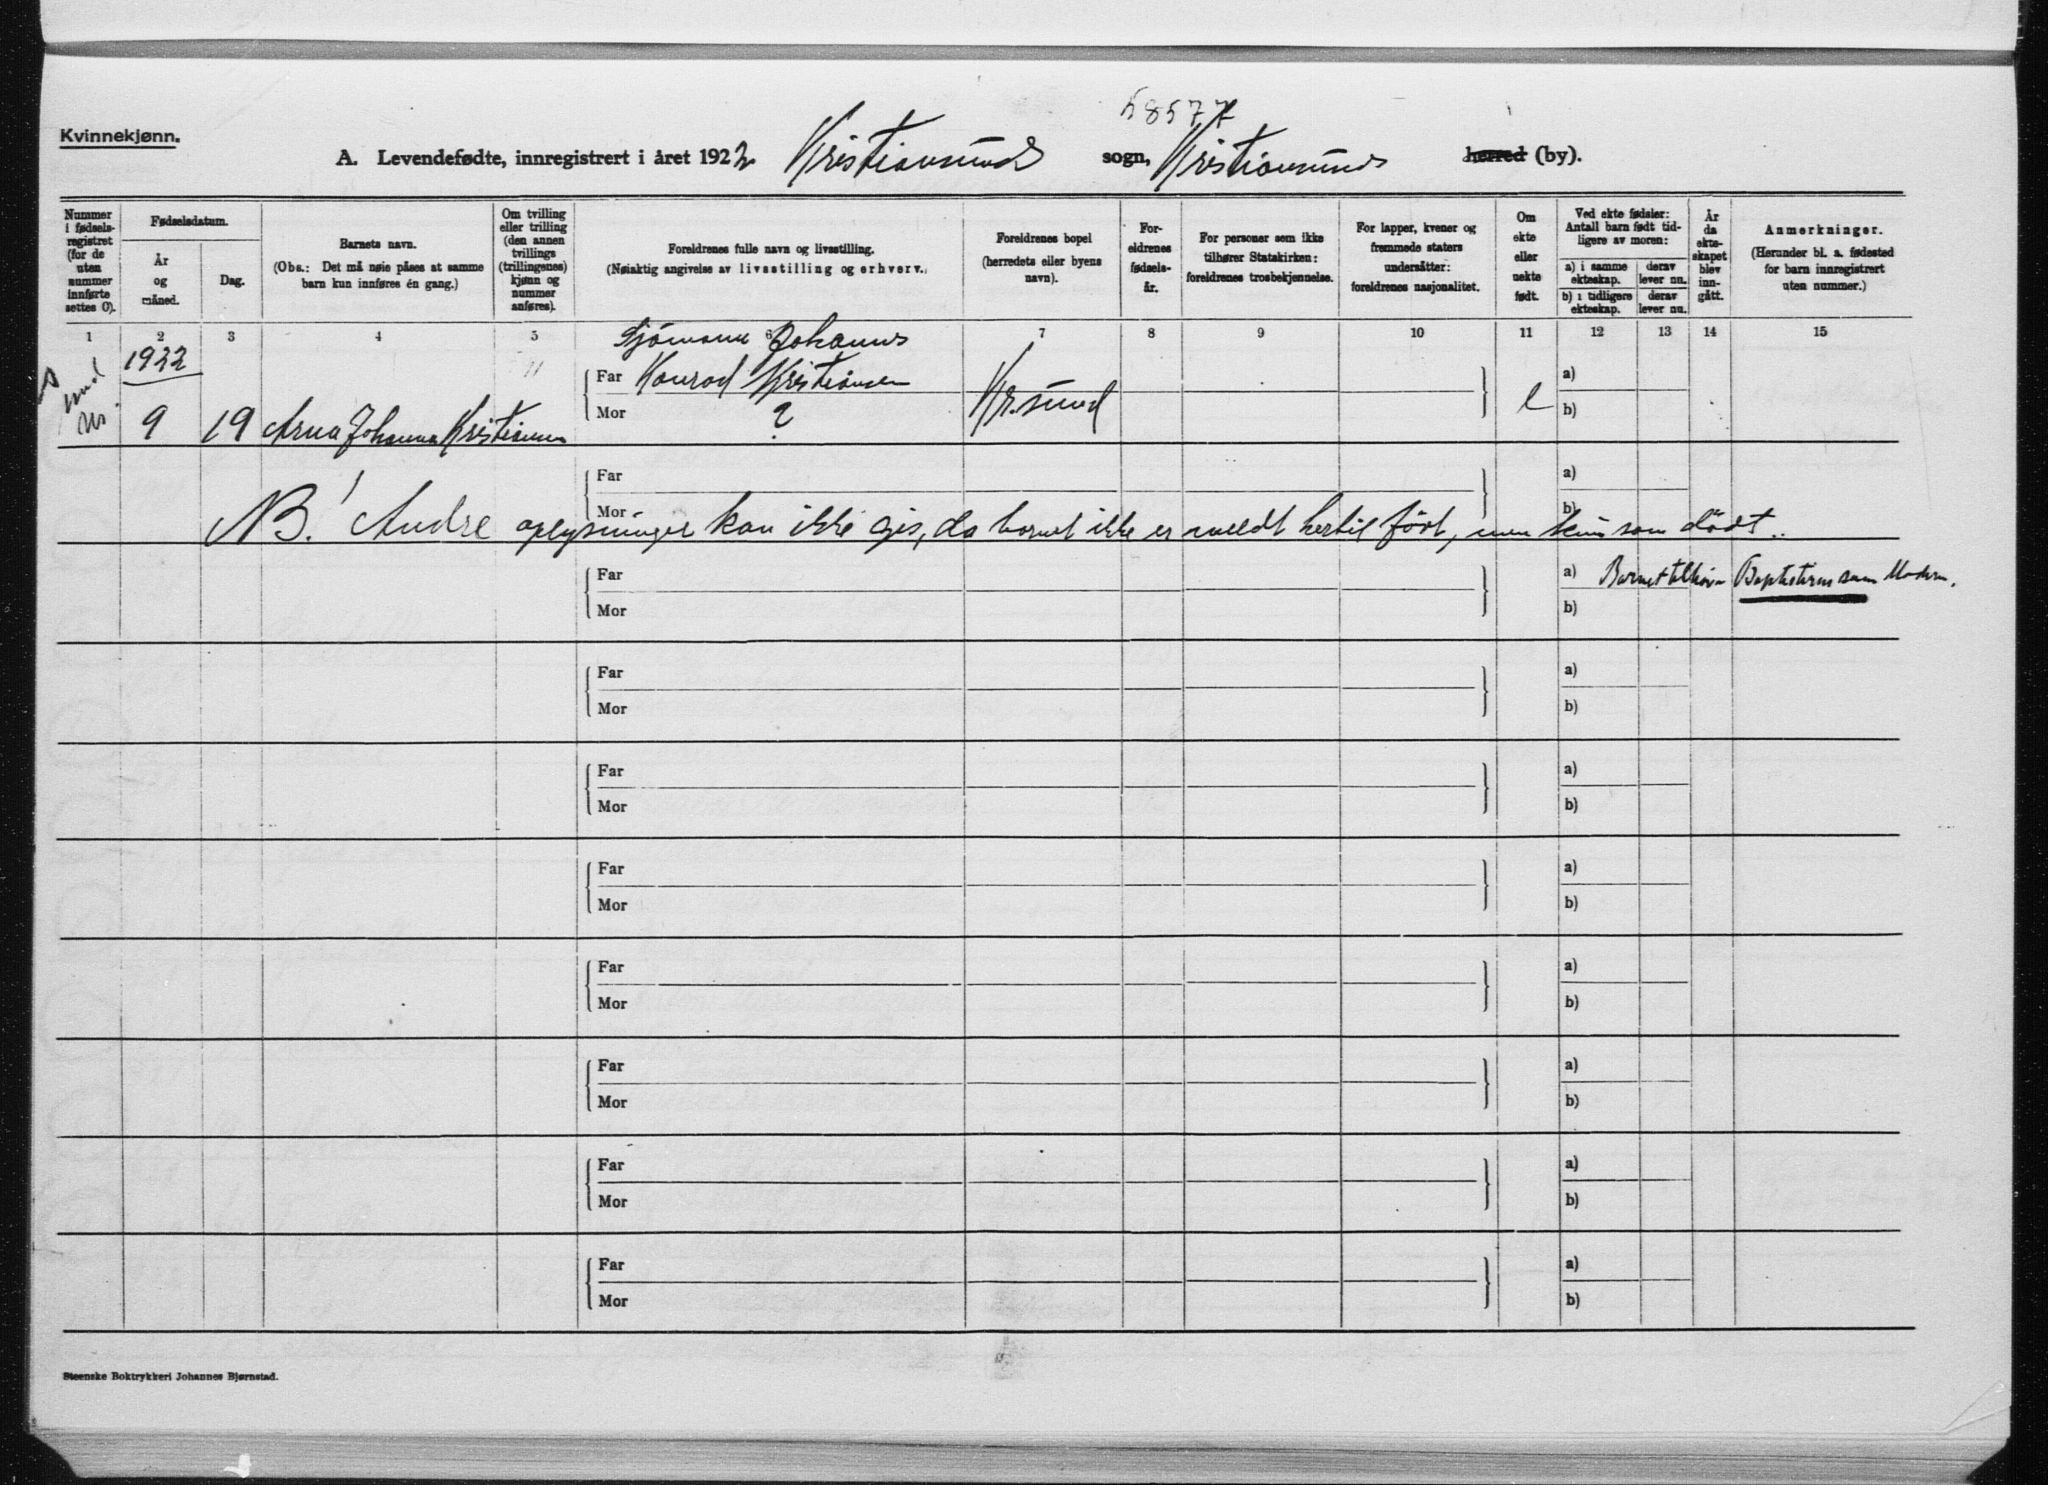 58577
Kvinnekjønn.
A. Levendefødte, innregistrert i året 1922 Kristiansunds sogn, Kristiansunds herred (by).
Nummer i fødselsregistret (for de uten nummer innførte settes 0).
Fødselsdatum.
År og måned.
Dag.
Barnets navn.
(Obs.: Det må nøie påses at samme barn kun innføres én gang.)
Om tvilling eller trilling (den annen tvillings (trillingenes) kjønn og nummer anføres).
Foreldrenes fulle navn og livsstilling.
(Nøiaktig angivelse av livsstilling og erhverv.)
Foreldrenes bopel (herredets eller byens navn).
Foreldrenes fødselsår.
For personer som ikke tilhører Statskirken: foreldrenes trosbekjennelse.
For lapper, kvener og fremmede staters undersåtter: foreldrenes nasjonalitet.
Om ekte eller uekte født.
Ved ekte fødsler: Antall barn født tidligere av moren:
a) i samme ekteskap. derav lever nu.
b) i tidligere ekteskap. derav lever nu.
År da ekteskapet blev inngått.
Anmerkninger.
(Herunder bl. a. fødested for barn innregistrert uten nummer.)
1 2 3 4 5 6 7 8 9 10 11 12 13 14 15
1922
Sjømann Johannes
Far Konrad Kristiansen a)
Mor ? Kr.sund e b)
9 19 Arna Johanna Kristiansen
Far a)
Mor b)
NB! Andre oplysninger kan ikke gis, da barnet ikke er meldt hertil født, men kun som dødt.
Far a) Barnet tilhører Baptisterne som Moderen.
Mor b)
Far a)
Mor b)
Far a)
Mor b)
Far a)
Mor b)
Far a)
Mor b)
Far a)
Mor b)
Far a)
Mor b)
Far a)
Mor b)
Steenske Boktrykkeri Johannes Bjørnstad.